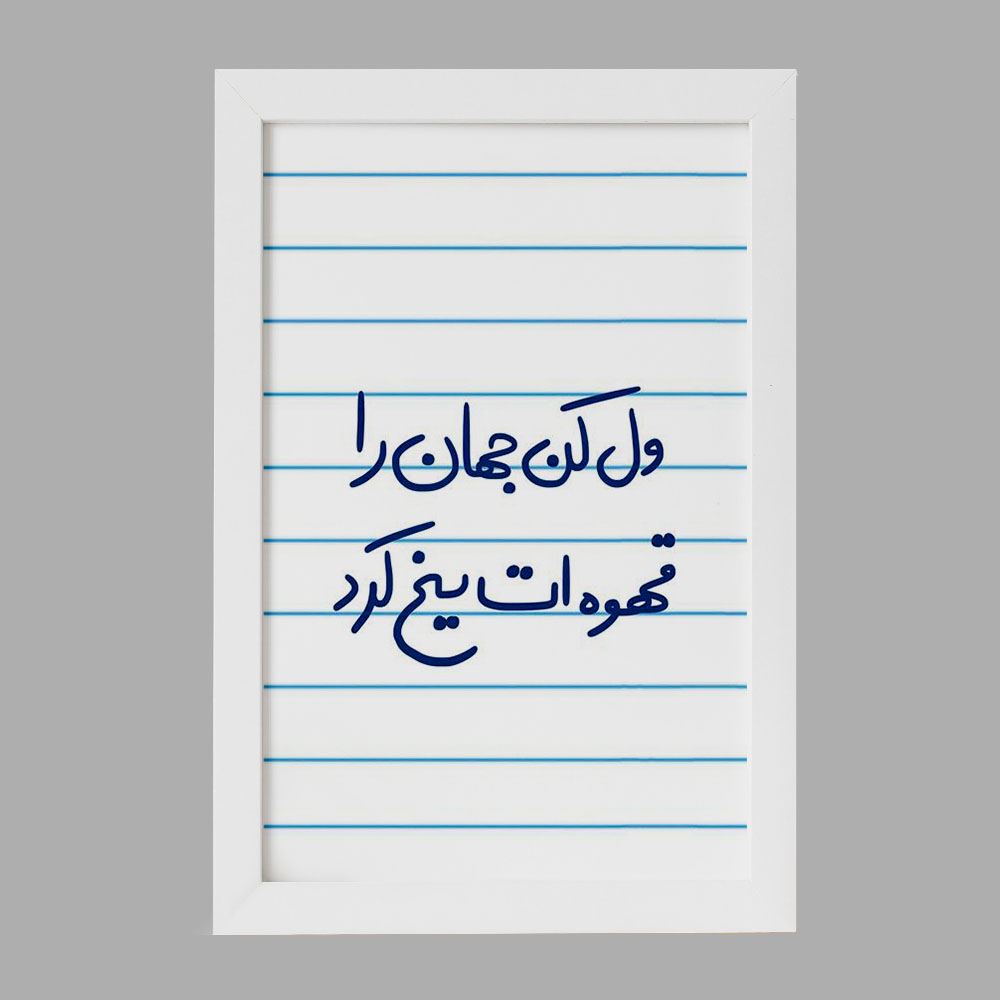 ول کن جهان را
قهوه ات یخ کرد